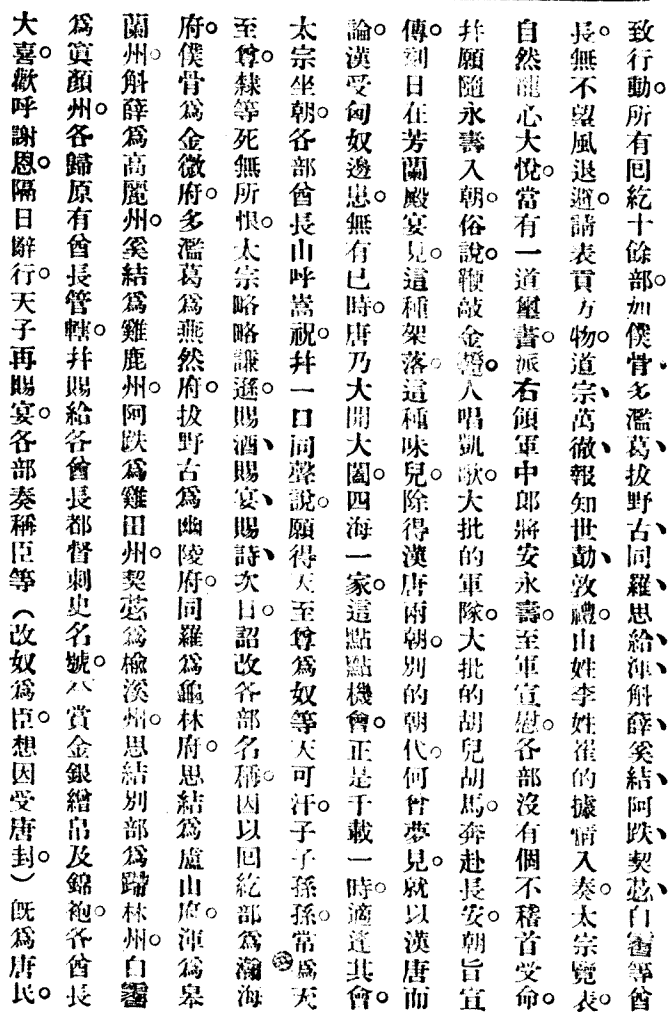 致行動。所有回紇十餘部。如僕骨、多濫葛、拔野古、同羅、思給、渾、斛薛、奚結、阿跌、契苾、白霫等酋
長。無不望風退避。請表貢方物。道宗、萬徹、報知世勣、敦禮。山姓李姓崔的據情入奏。太宗覽表。
自然龍心大悅。當有一道璽書。派右領軍中郎將安永壽。至軍宣慰。各部沒有個不稽首受命。
幷願隨永壽入朝。俗說鞭敲金鐙。人唱凱歌。大批的軍隊。大批的胡兒胡馬。奔赴長安。朝旨宣
傳。剋日在芳蘭殿宴見。這種架落。這種味兒。除得漢唐兩朝。別的朝代。何曾夢見。就以漢唐而
論。漢受匈奴邊患。無有已時。唐乃大開大闔。四海一家。這點點機會。正是千載一時。適逢其會。
太宗坐朝。各部酋長山呼嵩祝。幷一口同聲說。願得天至尊爲奴等天可汗。子子孫孫。常爲天
至尊隸等死無所恨。太宗略略謙遜。賜酒、賜宴、賜詩、次日。詔改各部名稱。因以回紇部爲瀚海
府。僕骨爲金微府。多濫葛爲燕然府。拔野古爲幽陵府。同羅爲龜林府。思結爲盧山府。渾爲皋
蘭州。斛薛爲高麗州。奚結爲雞鹿州。阿跌爲雞田州。契苾爲榆溪州。思結別部爲蹛林州。白霫
爲寘顏州。各歸原有酋長管轄。幷賜給各酋長都督刺史名號。大賞金銀繒帛及錦袍。各酋長
大喜。歡呼謝恩。隔日辭行。天子再賜宴。各部奏稱臣等（改奴爲臣。想因受唐封。）旣爲唐民。